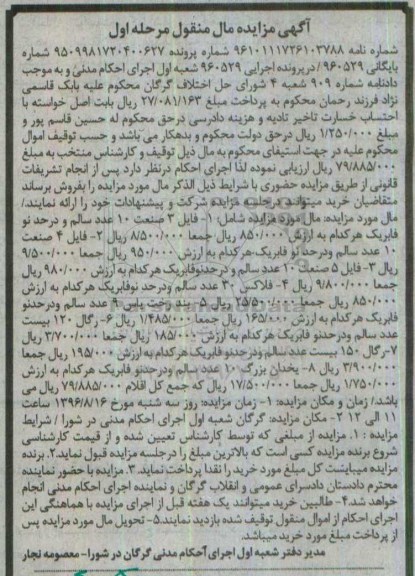 آگهی مزایده مال منقول مرحله اول
شماره نامه ۹۶۱۰۱۱۱۷۲۶۱۰۳۷۸۸ شماره پرونده ۹۵۰۹۹۸۱۷۲۰۴۰۰۶۲۷ شماره
بایگانی ۹۶۰۵۲۹ / درپرونده اجرایی ۹۶۰۵۲۹ شعبه اول اجرای احکام مدنی و به موجب
دادنامه شماره ۹۰۹ شعبه ۴ شورای حل اختلاف گرگان محکوم علیه بابک قاسمی
نژاد فرزند رحمان محکوم به پرداخت مبلغ ۲۷/۰۸۱/۱۶۳ ریال بابت اصل خواسته با
احتساب خسارت تاخیر تادیه و هزینه دادرسی درحق محکوم له حسین قاسم پور و
مبلغ ۱/۲۵۰/۰۰۰ ریال درحق دولت محکوم و بدهکار می باشد و حسب توقیف اموال
محکوم علیه در جهت استیفای محکوم به مال ذیل توقیف و کارشناس منتخب به مبلغ
۷۹/۸۸۵/۰۰۰ ریال ارزیابی نموده لذا اجرای احکام درنظر دارد پس از انجام تشریفات
قانونی از طریق مزایده حضوری با شرایط ذیل الذکر مال مورد مزایده را بفروش برساند
متقاضیان خرید میتوانند درجلسه مزایده شرکت و پیشنهادات خود را ارائه نمایند./
مال مورد مزایده: مال مورد مزایده شامل: ۱- فایل ۳ صنعت ۱۰ عدد سالم و درحد نو
فابریک هرکدام به ارزش ۸۵۰/۰۰۰ ریال جمعا ۸/۵۰۰/۰۰۰ ریال ۲- فایل ۴ صنعت
۱۰ عدد سالم ودرحد نو فابریک هرکدام به ارزش ۹۵۰/۰۰۰ ریال جمعا ۹/۵۰۰/۰۰۰
ریال ۳- فایل ۵ صنعت ۱۰ عدد سالم و درحدنوفابریک هرکدام به ارزش ۹۸۰/۰۰۰ ریال
جمعا ۹/۸۰۰/۰۰۰ ریال ۴- فلاکس ۳۰ عدد سالم ودرحد نوفابریک هرکدام به ارزش
۸۵۰/۰۰۰ ریال جمعا ۲۵/۵۰۰/۰۰۰ ریال ۵- بند رخت پاس ۹ عدد سالم ودرحدنو
فابریک هرکدام به ارزش ۱۶۵/۰۰۰ ریال جمعا ۱/۴۸۵/۰۰۰ ریال ۶- رگال ۱۲۰ بیست
عدد سالم ودرحدنو فابریک هرکدام به ارزش ۱۸۵/۰۰۰ ریال جمعا ۳/۷۰۰/۰۰۰ ریال
۷-رگال ۱۵۰ بیست عدد سالم ودرحدنو فابریک هرکدام به ارزش ۱۹۵/۰۰۰ ریال جمعا
۳/۹۰۰/۰۰۰ ریال ۸- یخدان بزرگ ۱۰ عدد سالم ودرحدنو فابریک هرکدام به ارزش
۱/۷۵۰/۰۰۰ ریال جمعا ۱۷/۵۰۰/۰۰۰ ریال که جمع کل اقلام ۷۹/۸۸۵/۰۰۰ ریال می
باشد/ زمان و مکان مزایده: ۱- زمان مزایده: روز سه شنبه مورخ ۱۳۹۶/۸/۱۶ ساعت
۱۱ الی ۱۲ ۲- مکان مزایده: گرگان شعبه اول اجرای احکام مدنی در شورا / شرایط
مزایده : ۱. مزایده از مبلغی که توسط کارشناس تعیین شده و از قیمت کارشناسی
شروع برنده مزایده کسی است که بالاترین مبلغ را درجلسه مزایده قبول نماید.۲. برنده
مزایده میبایست کل مبلغ مورد خرید را نقدا پرداخت نماید. ۳. مزایده با حضور نماینده
محترم دادستان دادسرای عمومی و انقلاب گرگان و نماینده اجرای احکام مدنی انجام
خواهد شد.۴- طالبین خرید میتوانند یک هفته قبل از اجرای مزایده با هماهنگی این
اجرای احکام از اموال منقول توقیف شده بازدید نمایند.۵- تحویل مال مورد مزایده پس
از پرداخت مبلغ مورد خرید میباشد.
مدیر دفتر شعبه اول اجرای احکام مدنی گرگان در شورا- معصومه نجار